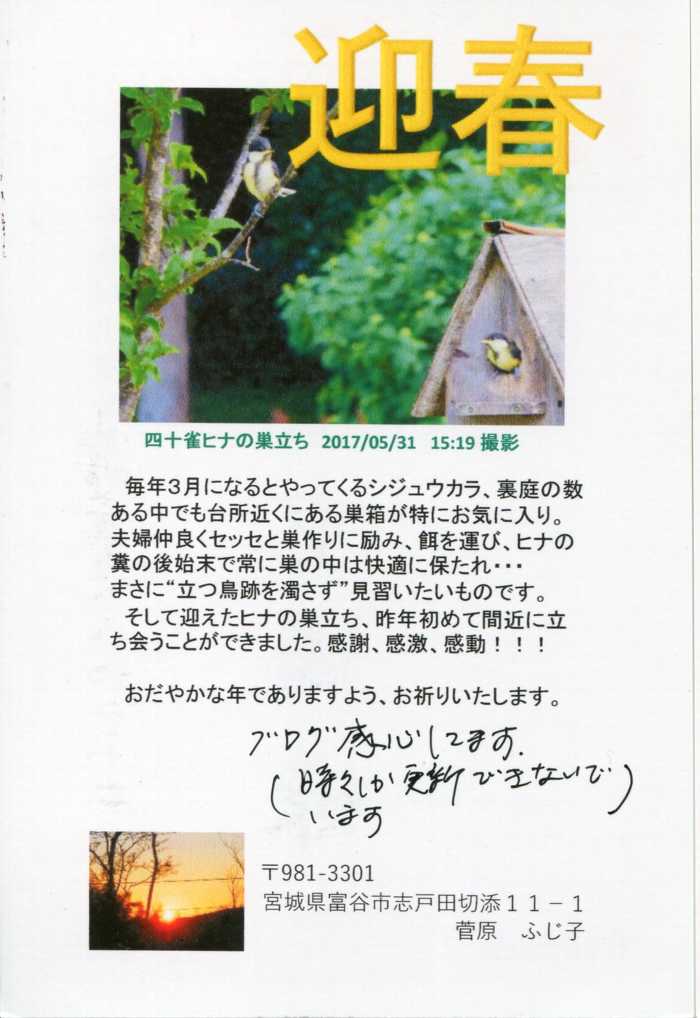 迎春
四十雀ヒナの巣立ち 2017/05/31 15:19 撮影
毎年３月になるとやってくるシジュウカラ、裏庭の数
ある中でも台所近くにある巣箱が特にお気に入り。
夫婦仲良くセッセと巣作りに励み、餌を運び、ヒナの
糞の後始末で常に巣の中は快適に保たれ・・・
まさに“立つ鳥跡を濁さず”見習いたいものです。
そして迎えたヒナの巣立ち、昨年初めて間近に立
ち会うことができました。感謝、感激、感動！！！
おだやかな年でありますよう、お祈りいたします。
ブログ感心してます.
(時々しか更新できないで
います)
〒981-3301
宮城県富谷市志戸田切添１１－１
菅原　ふじ子